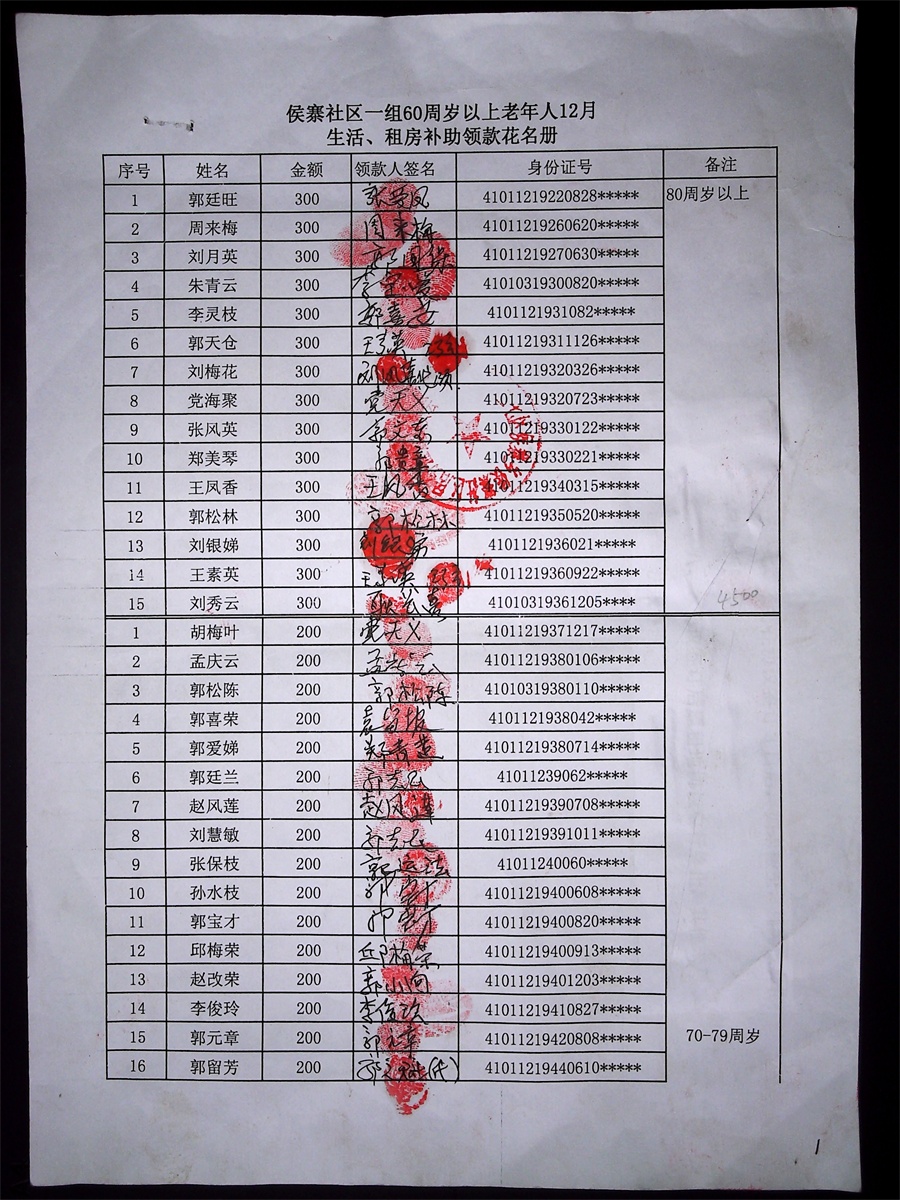 侯寨社区一组60周岁以上老年人12月
生活、租房补助领款花名册
序号 姓名 金额 领款人签名 身份证号 备注
1 郭廷旺 300 41011219220828***** 80周岁以上
2 周来梅 300 周来梅 41011219260620*****
3 刘月英 300 41011219270630*****
4 朱青云 300 41010319300820*****
5 李灵枝 300 4101121931082*****
6 郭天仓 300 41011219311126*****
7 刘梅花 300 41011219320326*****
8 党海聚 300 党天义 41011219320723*****
9 张风英 300 41011219330122*****
10 郑美琴 300 41011219330221*****
11 王凤香 300 王凤香 41011219340315*****
12 郭松林 300 郭松林 41011219350520*****
13 刘银娣 300 刘银娣 4101121936021*****
14 王素英 300 王素英 41011219360922*****
15 刘秀云 300 41010319361205**** 4500
1 胡梅叶 200 党天义 41011219371217*****
2 孟庆云 200 孟庆云 41011219380106*****
3 郭松陈 200 郭松陈 41010319380110*****
4 郭喜荣 200 4101121938042*****
5 郭爱娣 200 41011219380714*****
6 郭廷兰 200 41011239062*****
7 赵风莲 200 赵风莲 41011219390708*****
8 刘慧敏 200 41011219391011*****
9 张保枝 200 41011240060*****
10 孙水枝 200 41011219400608*****
11 郭宝才 200 41011219400820*****
12 邱梅荣 200 邱梅荣 41011219400913*****
13 赵改荣 200 41011219401203*****
14 李俊玲 200 李俊玲 41011219410827*****
15 郭元章 200 郭元章 41011219420808***** 70-79周岁
16 郭留芳 200 41011219440610*****
1